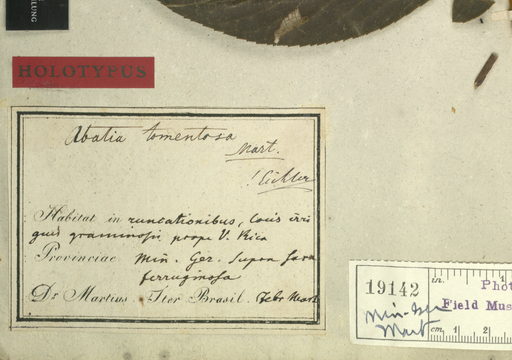 LUNG
HOLOTYPUS
Abatia tomentosa
Mart.
! Eichler
Habitat in runcationibus, locis irri
guis graminosis prope V. Rica
Provinciae Min. Ger. Supra
ferruginosa
Dr Martius Iter Brasil. Febr Mart
19142
Min. Ger
Mart
in.
Phot
Field Mus
cm. 1 2